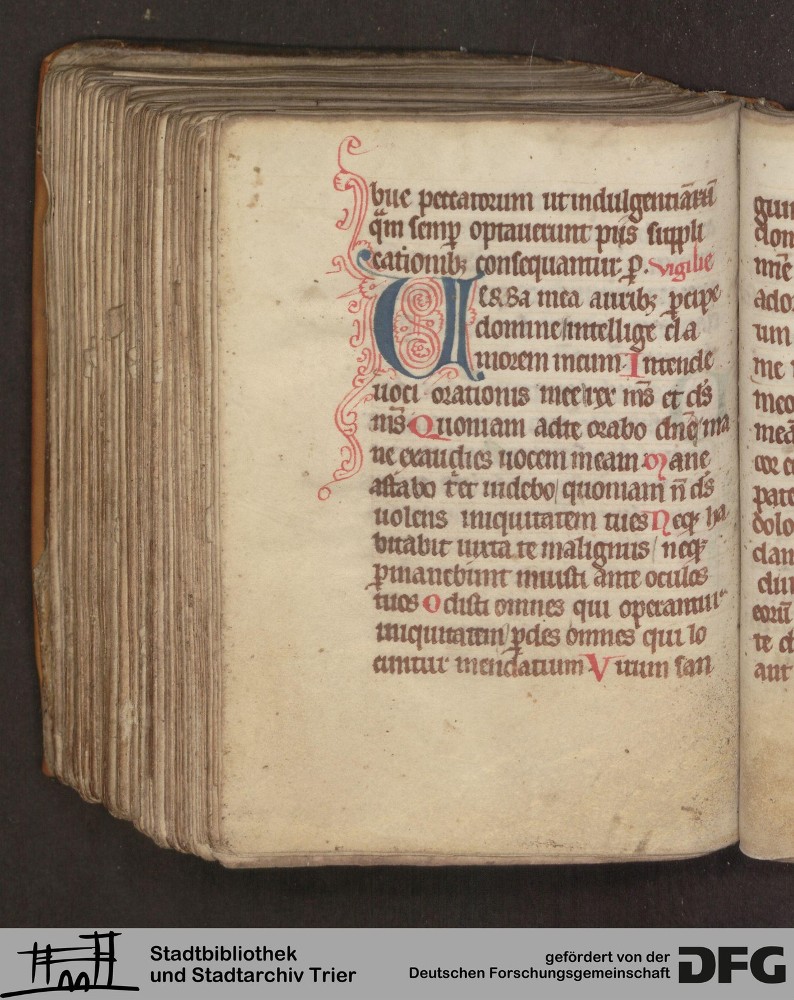 bue peccatorum ut indulgentiā eā
q̄m semꝑ optauerunt piis suppli
cationibꝫ consequantur ꝑ. vigilie
Uerba mea auribꝫ percipe
domine/intellige cla
morem meum. Intende
uoci orationis mee/rex m̄s et d̄s
m̄s Quoniam adte orabo dn̄e/ma
ne exaudies uocem meam Mane
astabo t̄ et uidebo/quoniam n̄ d̄s
uolens iniquitatem tu es Neqꝫ ha
bitabit iuxta te malignus/neqꝫ
ꝑmanebunt iniusti ante oculos
tuos Odisti omnes qui operantur
iniquitatem/ꝑdes omnes qui lo
cuntur mendatium Virum san
dolo
te d
Stadtbibliothek
und Stadtarchiv Trier
gefördert von der
Deutschen Forschungsgemeinschaft
DFG